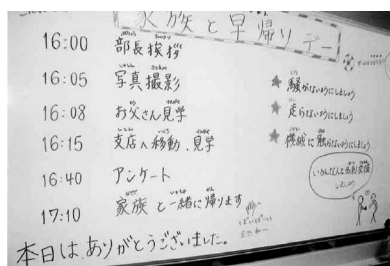 家族と早帰りデー
16:00 部長挨拶
16:05 写真撮影
16:08 お父さん見学
16:15 支店へ移動、見学
16:40 アンケート
17:10 家族と一緒に帰ります
★ 騒がないようにしましょう
★ 走らないようにしましょう
★ 機械に触らないようにしましょう
しましょう
本日は、ありがとうございました。